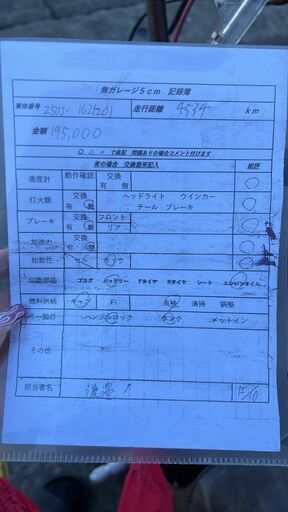 無ガレージ5cm 記録簿
車体番号 250J-1621201 走行距離 4534 km
金額 195,000
○ △ × で表記 問題ありの場合コメント付けます
有の場合 交換箇所記入 総評
速度計 動作確認 交換 有 無 ○
灯火類 交換 有 無 ヘッドライト ウインカー テール ブレーキ ○
ブレーキ 交換 有 無 フロント リア ○
加速力 交換 有 無 ○
始動性 セル キック ○
交換部品 プラグ バッテリー Fタイヤ Rタイヤ シート エンジンオイル
燃料供給 キャブ FI 点検 清掃 調整
キー動作 ハンドルロック タンク メットイン
その他
担当者名 12/10